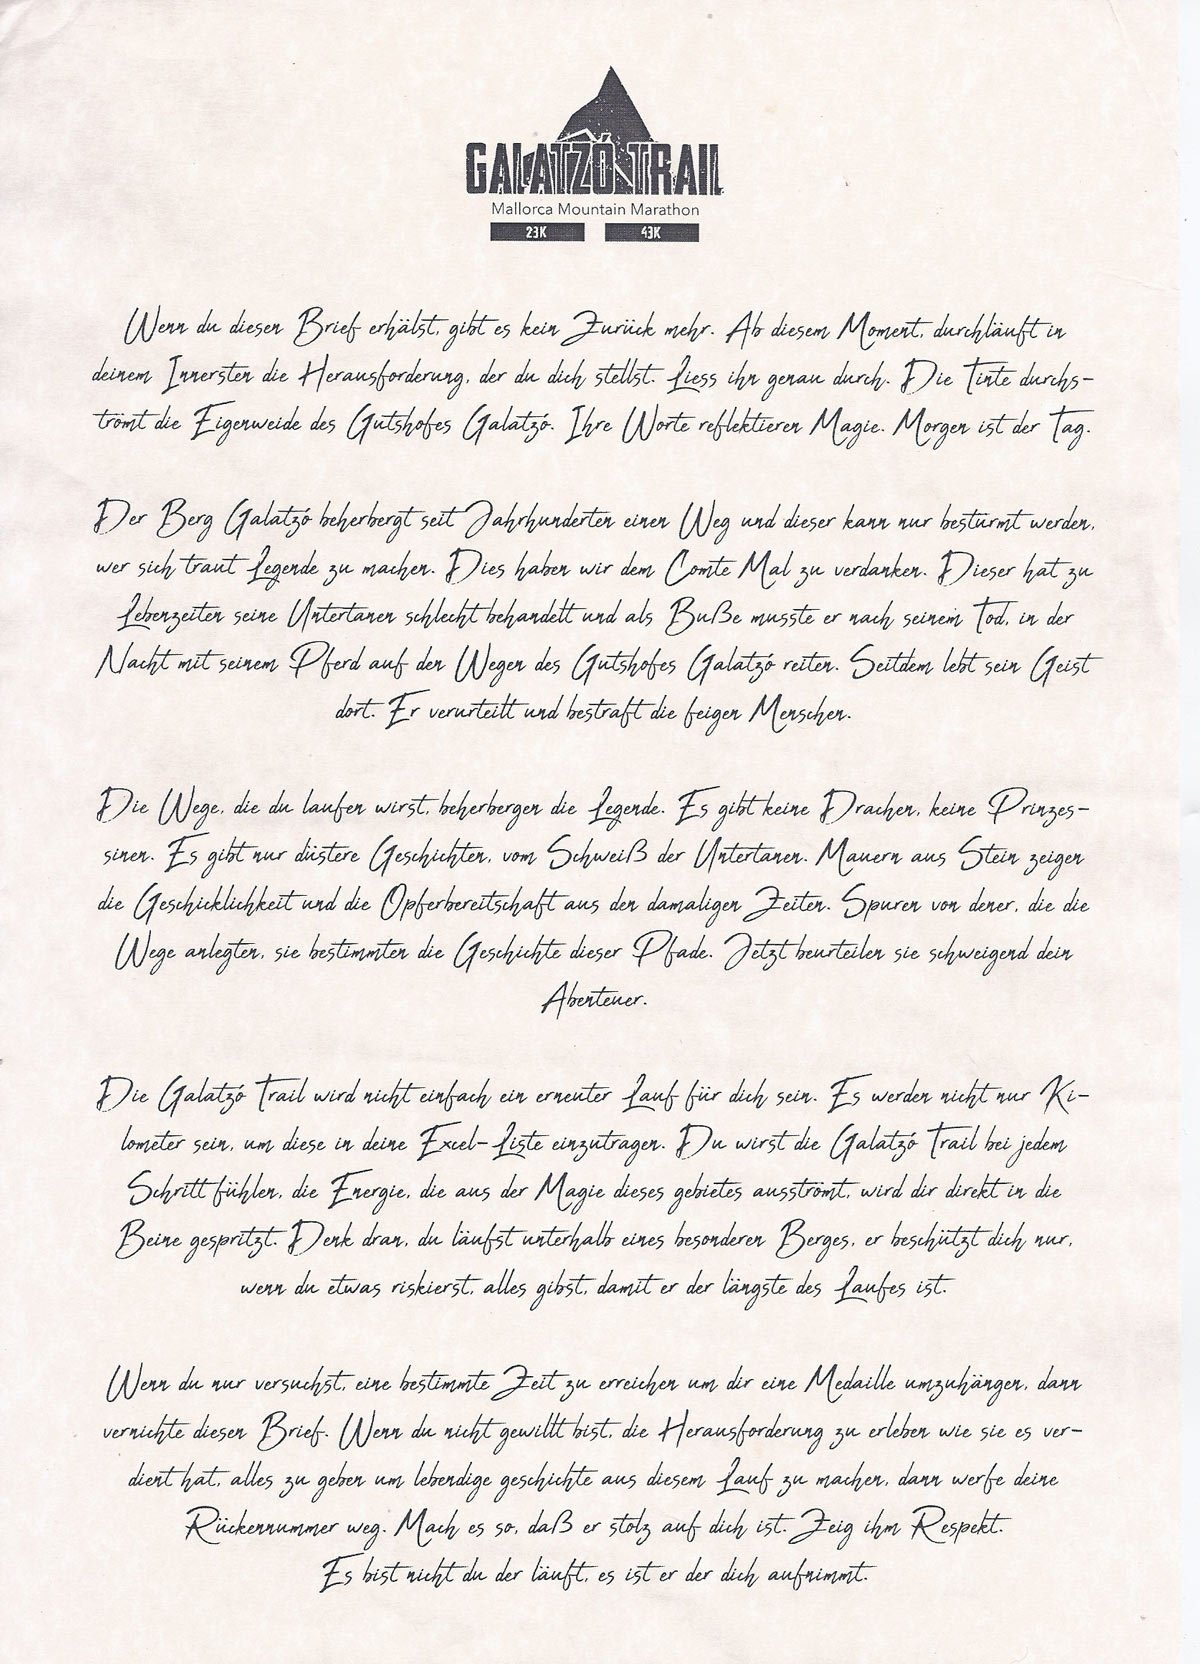 GALATZÓ TRAIL
Mallorca Mountain Marathon
23K 43K
Wenn du diesen Brief erhälst, gibt es kein Zurück mehr. Ab diesem Moment, durchläuft in
deinem Innersten die Herausforderung, der du dich stellst. Liess ihn genau durch. Die Tinte durchs-
trömt die Eigenweide des Gutshofes Galatzó. Ihre Worte reflektieren Magie. Morgen ist der Tag.
Der Berg Galatzó beherbergt seit Jahrhunderten einen Weg und dieser kann nur bestürmt werden,
wer sich traut Legende zu machen. Dies haben wir dem Comte Mal zu verdanken. Dieser hat zu
Lebenzeiten seine Untertanen schlecht behandelt und als Buße musste er nach seinem Tod, in der
Nacht mit seinem Pferd auf den Wegen des Gutshofes Galatzó reiten. Seitdem lebt sein Geist
dort. Er verurteilt und bestraft die feigen Menschen.
Die Wege, die du laufen wirst, beherbergen die Legende. Es gibt keine Drachen, keine Prinzes-
sinen. Es gibt nur düstere Geschichten, vom Schweiß der Untertanen. Mauern aus Stein zeigen
die Geschicklichkeit und die Opferbereitschaft aus den damaligen Zeiten. Spuren von dener, die die
Wege anlegten, sie bestimmten die Geschichte dieser Pfade. Jetzt beurteilen sie schweigend dein
Abenteuer.
Die Galatzó Trail wird nicht einfach ein erneuter Lauf für dich sein. Es werden nicht nur Ki-
lometer sein, um diese in deine Excel-Liste einzutragen. Du wirst die Galatzó Trail bei jedem
Schritt fühlen, die Energie, die aus der Magie dieses gebietes ausströmt, wird dir direkt in die
Beine gespritzt. Denk dran, du läufst unterhalb eines besonderen Berges, er beschützt dich nur,
wenn du etwas riskierst, alles gibst, damit er der längste des Laufes ist.
Wenn du nur versuchst, eine bestimmte Zeit zu erreichen um dir eine Medaille umzuhängen, dann
vernichte diesen Brief. Wenn du nicht gewillt bist, die Herausforderung zu erleben wie sie es ver-
dient hat, alles zu geben um lebendige geschichte aus diesem Lauf zu machen, dann werfe deine
Rückennummer weg. Mach es so, daß er stolz auf dich ist. Zeig ihm Respekt.
Es bist nicht du der läuft, es ist er der dich aufnimmt.